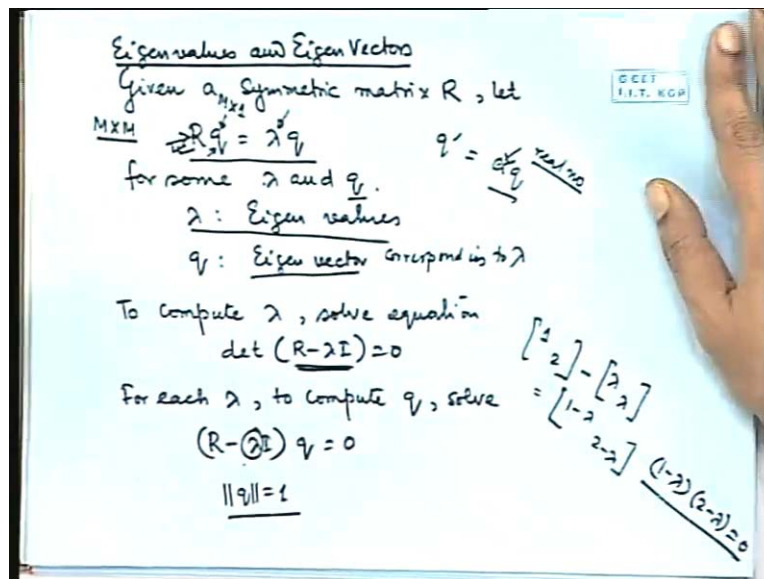 Eigenvalues and Eigen Vectors
Given a Symmetric matrix R, let
M×1
M×M Rq = λq
q' = αq real no
for some λ and q.
λ : Eigen values
q : Eigen vector corresponding to λ
To compute λ, solve equation
det (R-λI)=0
For each λ, to compute q, solve
(R-λI) q = 0
||q||=1
[1 2] - [λ λ]
= [1-λ 2-λ] (1-λ)(2-λ)=0
I.I.T. KGP